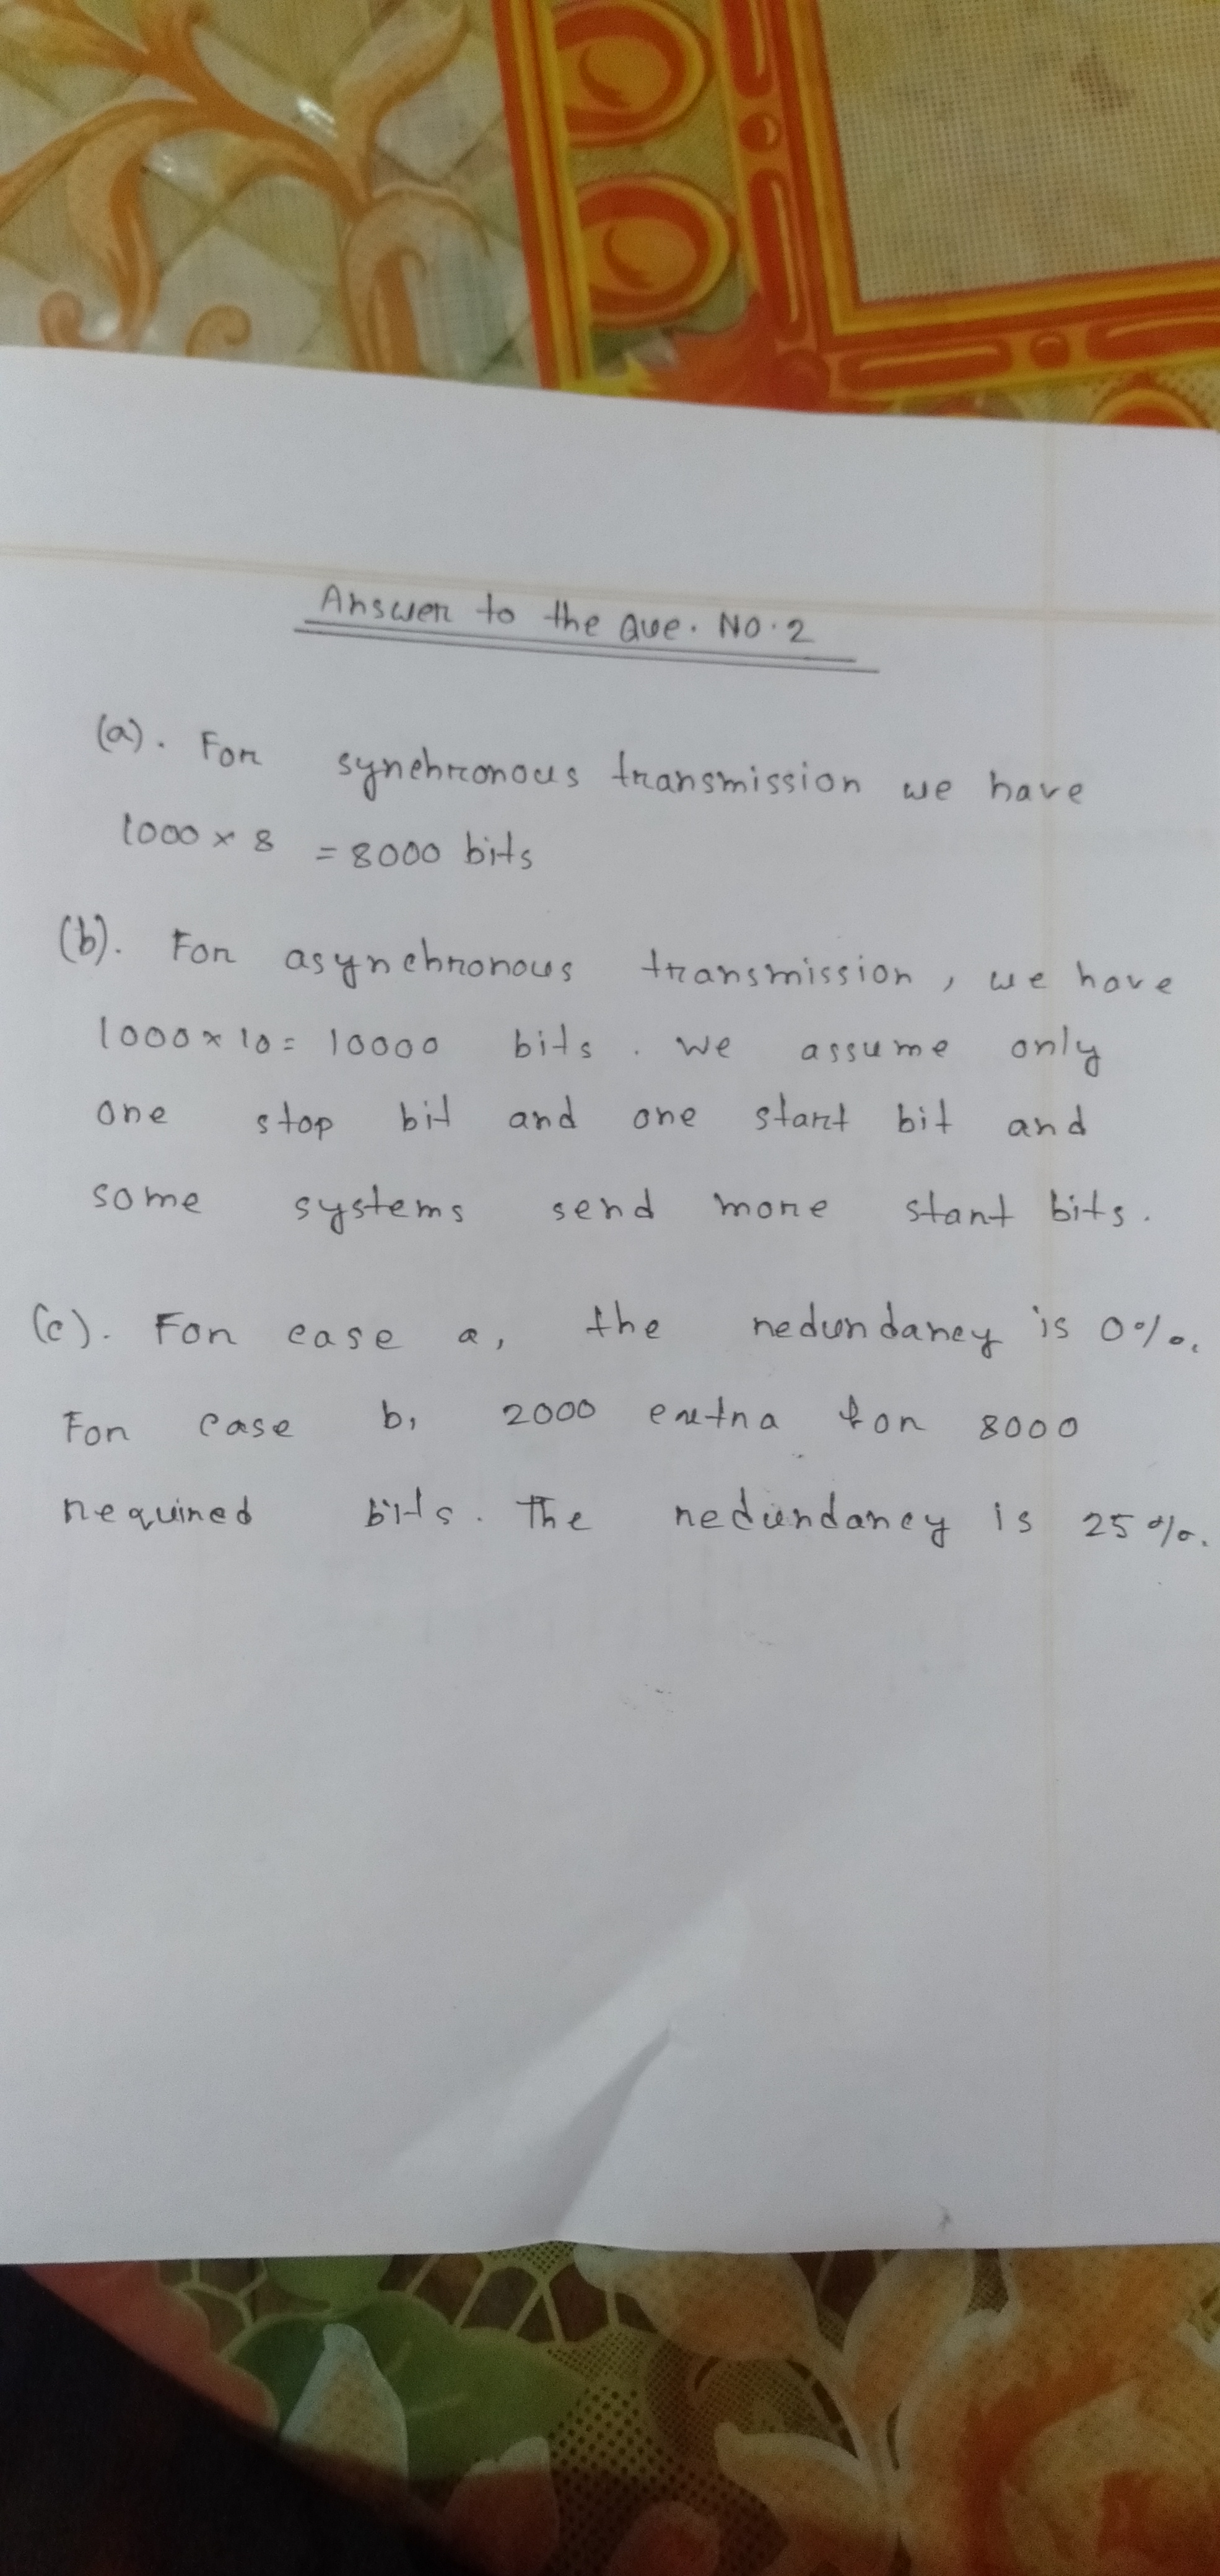 Answer to the Que. No. 2
(a). For synchronous transmission we have
1000 × 8 = 8000 bits
(b). For asynchronous transmission, we have
1000 × 10 = 10000 bits. We assume only
one stop bit and one start bit and
some systems send more start bits.
(c). For case a, the redundancy is 0%.
For case b, 2000 extra for 8000
required bits. The redundancy is 25%.